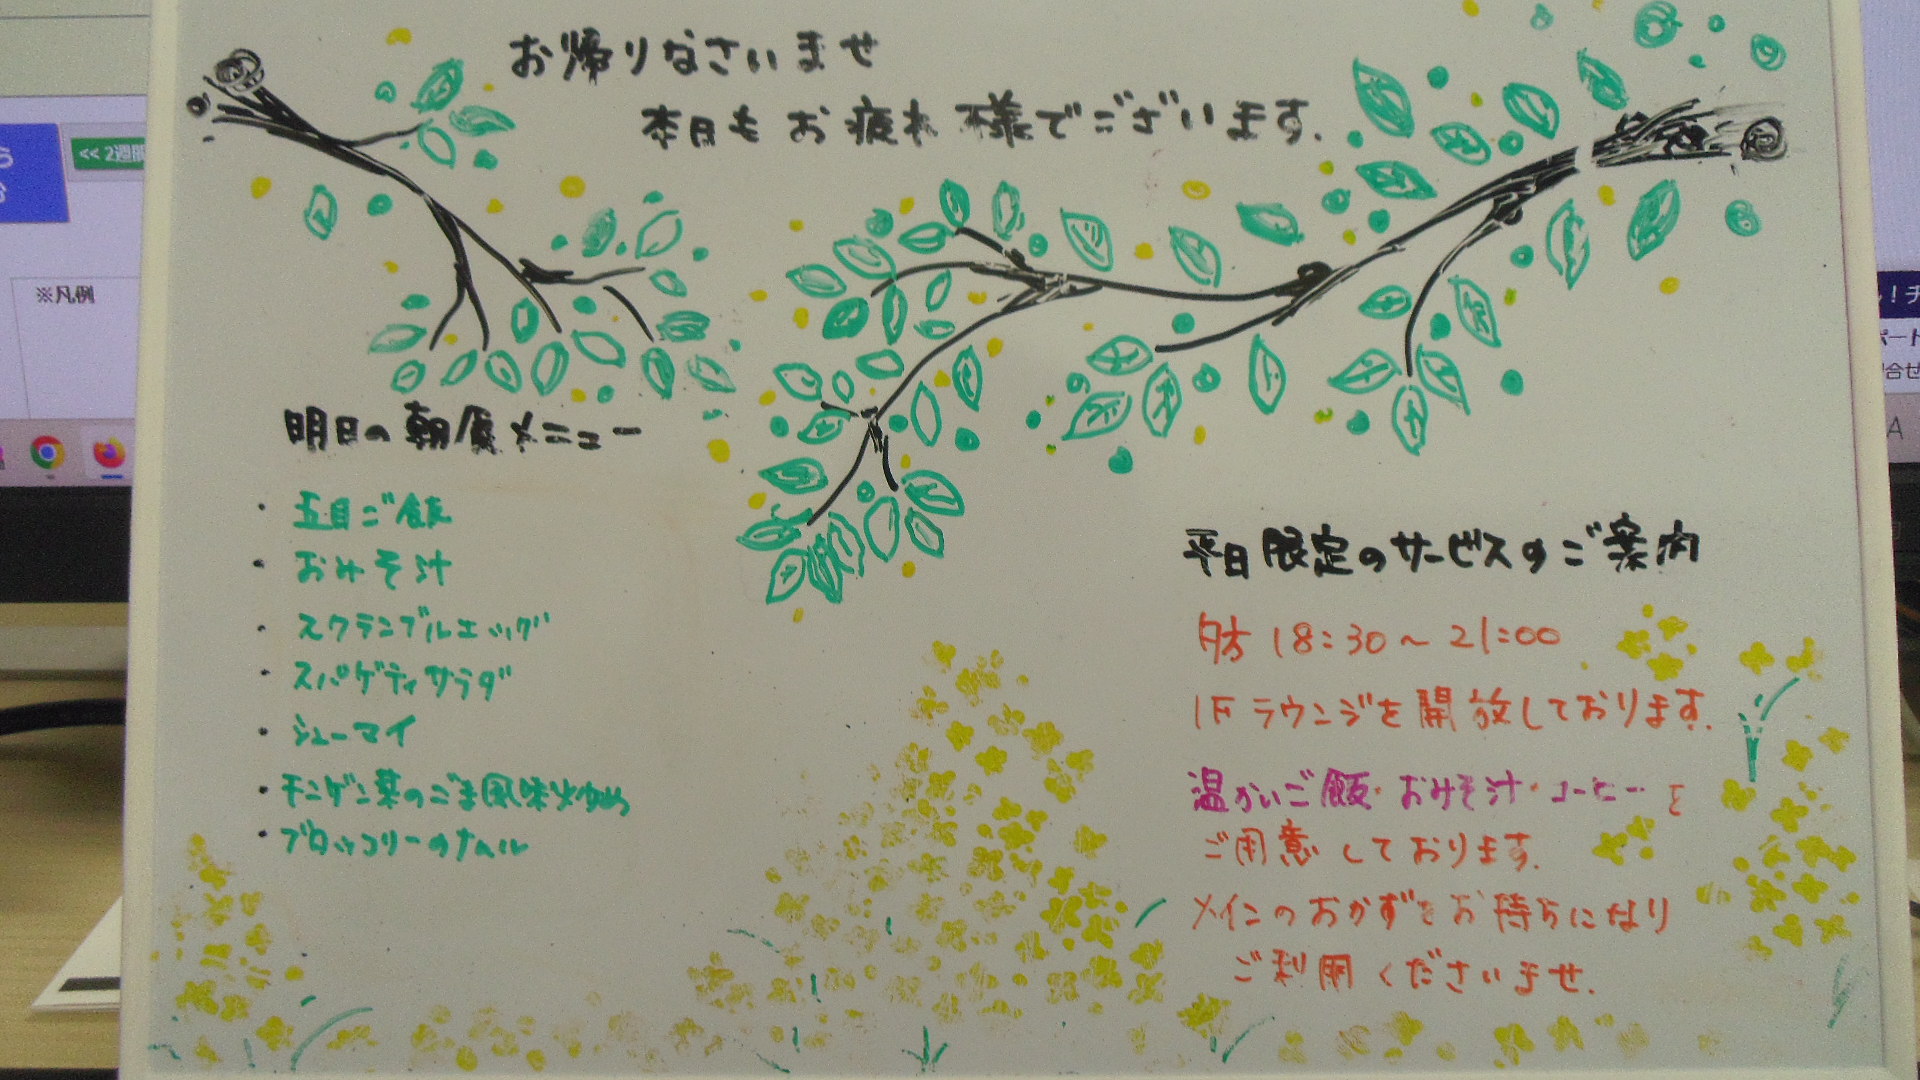 お帰りなさいませ
本日もお疲れ様でございます.
明日の朝食メニュー
・五目ご飯
・おみそ汁
・スクランブルエッグ
・スパゲティサラダ
・シューマイ
・チンゲン菜のごま風味炒め
・ブロッコリーのナムル
平日限定のサービスのご案内
18:30～21:00
1Fラウンジを開放しております.
温かいご飯・おみそ汁・コーヒーを
ご用意しております.
メインのおかずをお持ちになり
ご利用くださいませ.
<< 2週間
※凡例